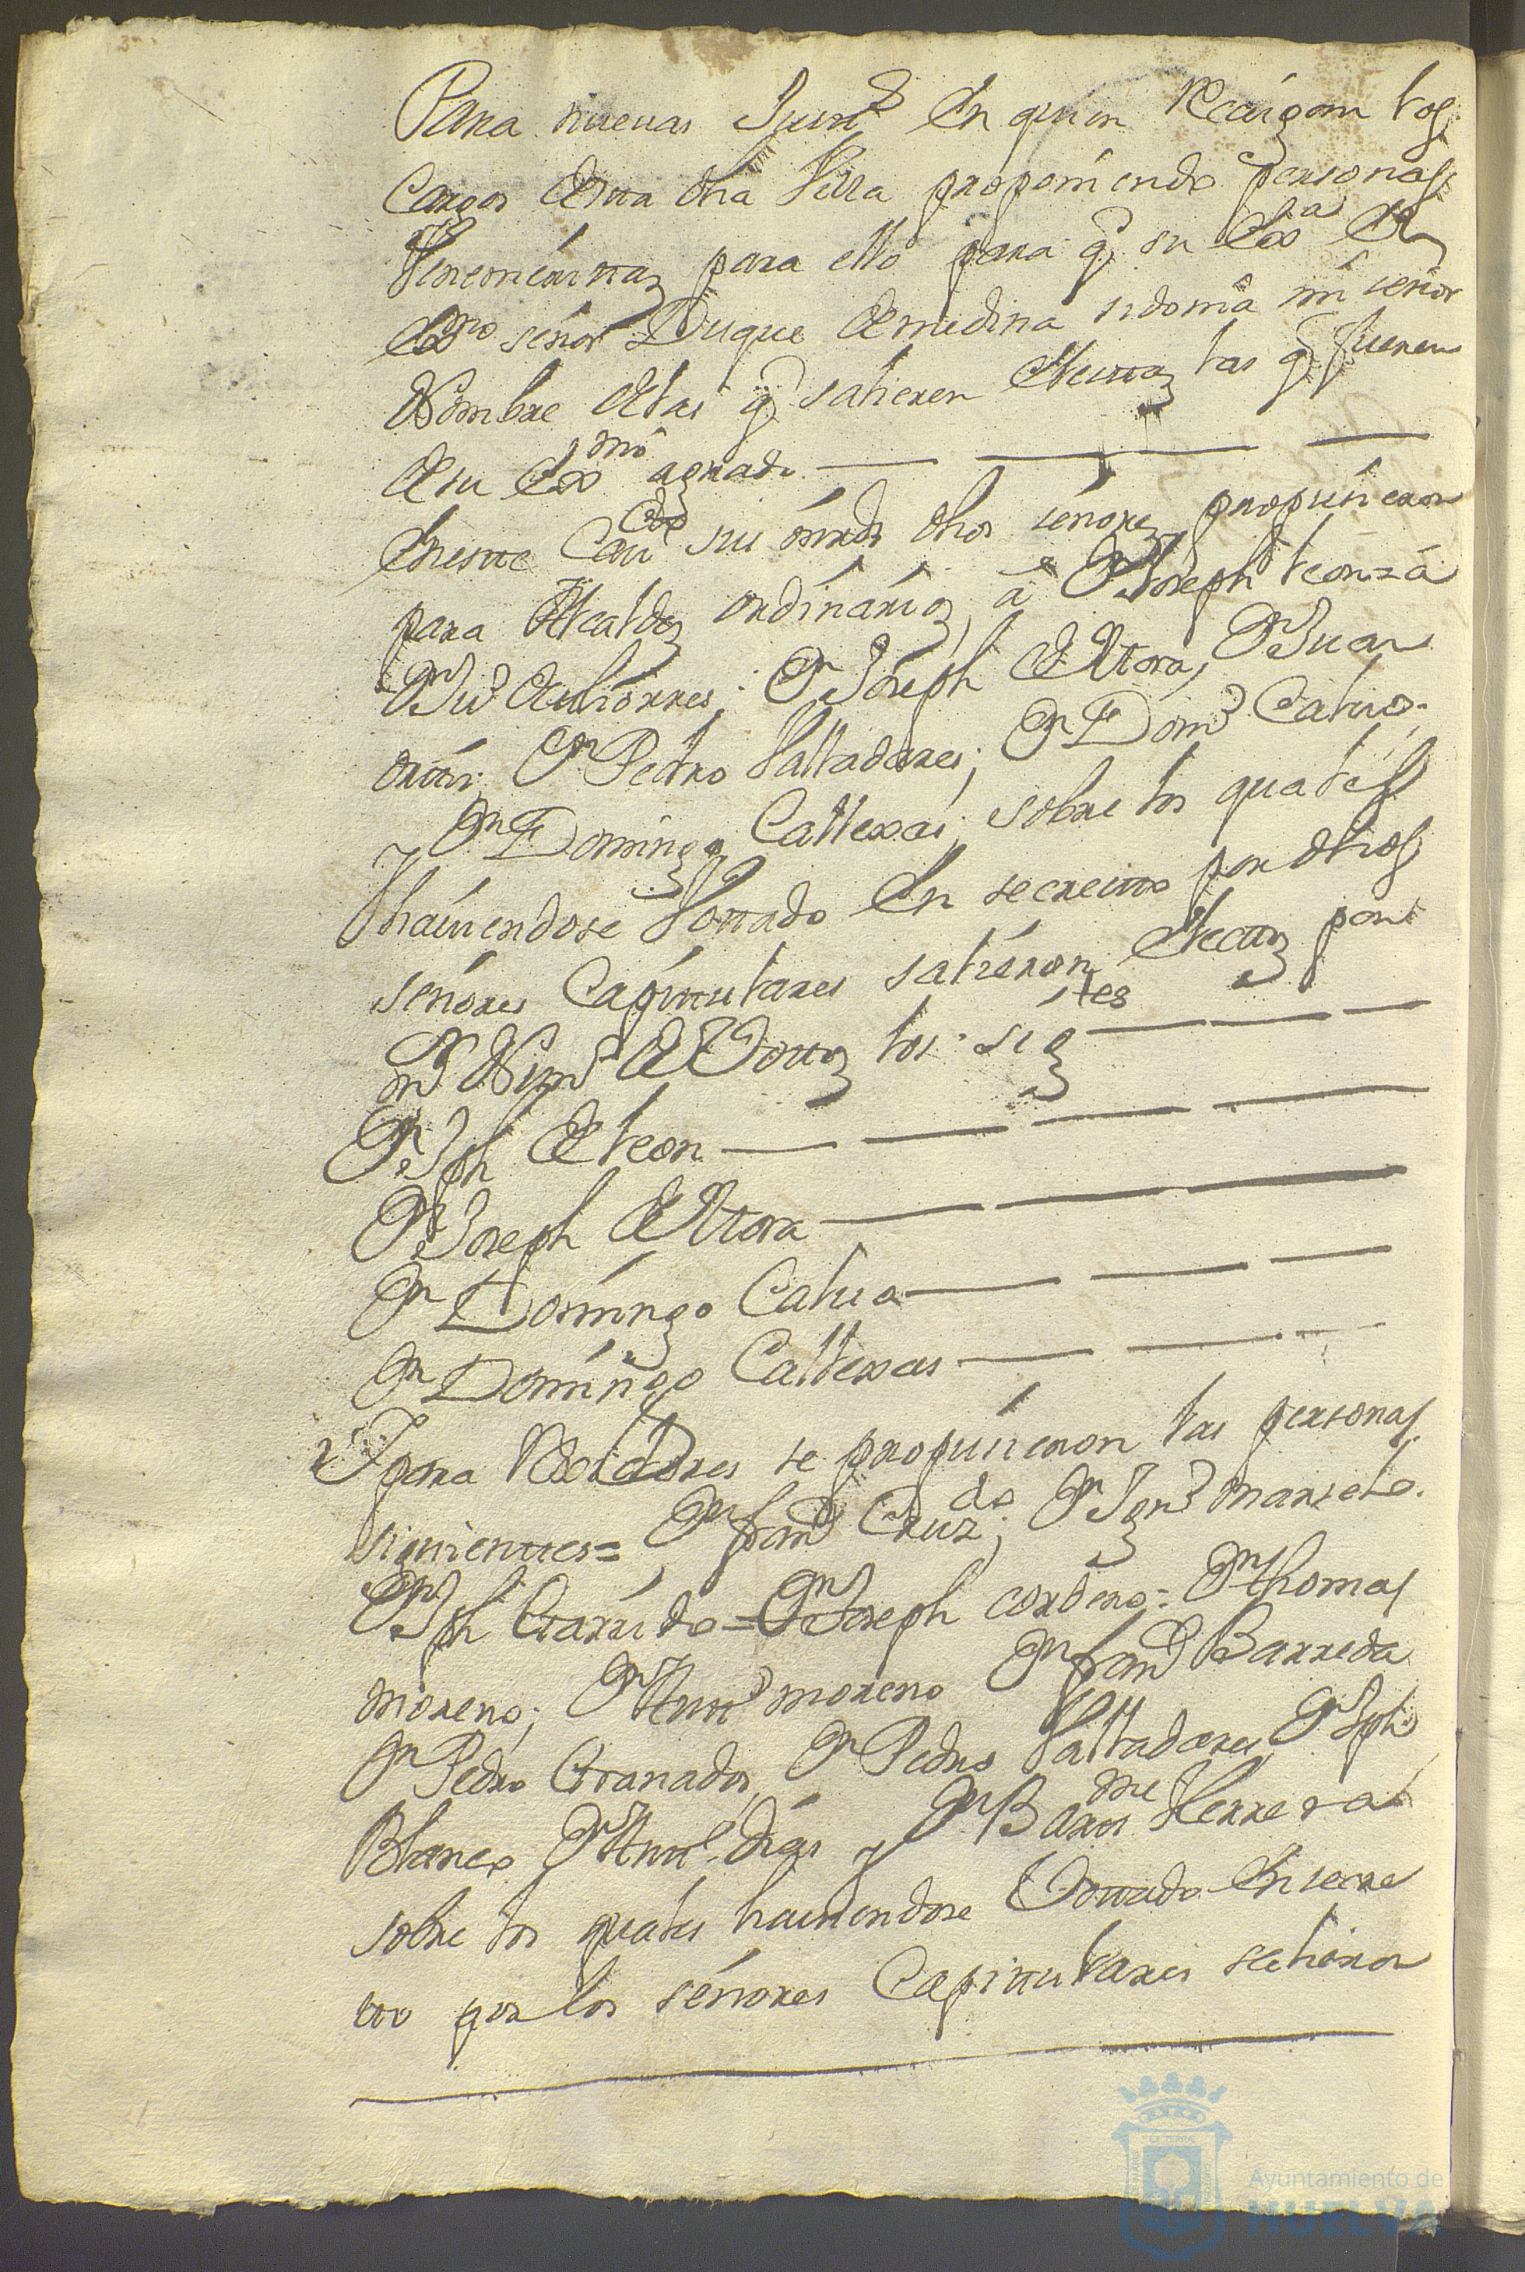 Para nuevas Justᵃˢ En quien Recaigan los
Cargos desta dha Villa proponiendo personas
Venemeritas para ello para q̃ su Exᵃ El
Exᵐᵒ señor Duque de medina sidonia mi señor
Nombre de las q̃ salieren Electas las q̃ fueren
de su Exᵐᵒ agrado
En este Cauᵈᵒ sus mrds dhos señores propusieron
para Alcaldes ordinarios, a Dⁿ Joseph leon, a
Dⁿ Juº Gutierres; Dⁿ Joseph de Mora, Dⁿ Juan
ortis; Dⁿ Pedro Valladares; Dⁿ Domº Caluo
y Dⁿ Domingo Callexas; sobre los quales
hauiendose Vottado En secretto por dhos
señores Capitulares salieron Electos por
mᵒʳ Numº de Vottos los sigᵗᵉˢ
Dⁿ Jph de leon
Dⁿ Joseph de Mora
Dⁿ Domingo Caluo
Dⁿ Domingo Callexas
Y para Rexidores se propusieron las personas
siguienttes= Dⁿ franᶜᵒ Cruzᵈᵒ; Dⁿ Ignº marselo
Dⁿ Jph Garrido = Dⁿ Joseph cordero = Dⁿ thomas
moreno; Dⁿ Anttº moreno Dⁿ franᶜᵒ Barreda
Dⁿ Pedro Granados, Dⁿ Pedro Valladares, Dⁿ Jph
Blanco Dⁿ Anttº Dias y Dⁿ Barᵐᵉ Herrera
sobre los quales hauiendose Vottado En secre
tto por los señores Capitulares salieron
Ayuntamiento de
HUELVA